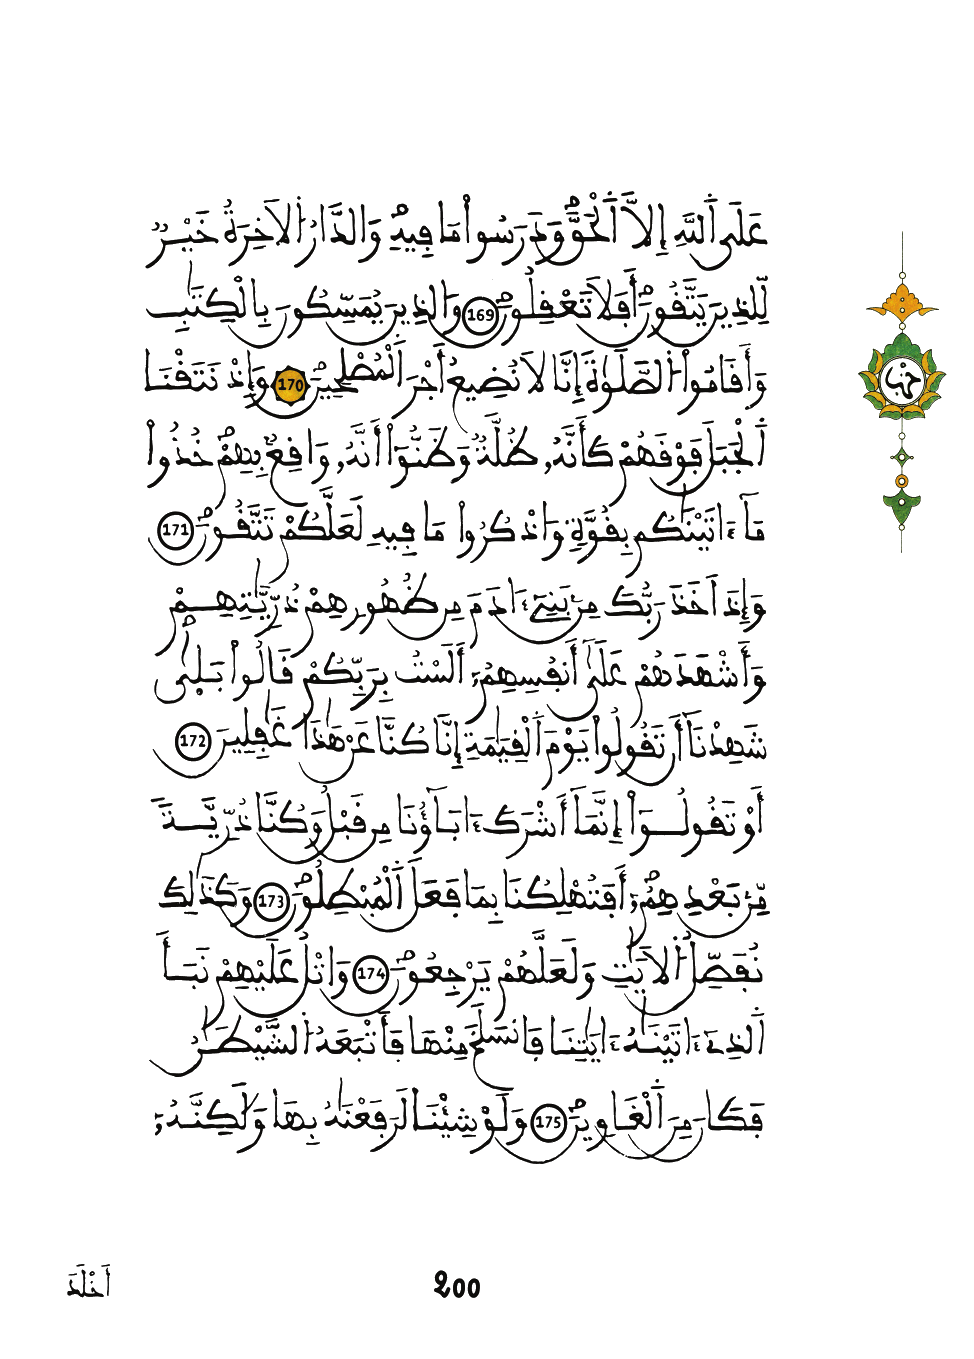 عَلَى اَ۬للَّهِ إِلَّا اَ۬لْحَقَّ وَدَرَسُواْ مَا فِيهِ وَالدَّارُ اُ۬لَاخِرَةُ خَيْرٞ
لِّلذِينَ يَتَّقُونَ أَفَلَا تَعْقِلُونَ 169 وَالذِينَ يُمَسِّكُونَ بِالْكِتَٰبِ
وَأَقَامُواْ اُ۬لصَّلَوٰةَ إِنَّا لَا نُضِيعُ أَجْرَ اَ۬لْمُصْلِحِينَ 170 وَإِذْ نَتَقْنَا
اَ۬لْجَبَلَ فَوْقَهُمْ كَأَنَّهُۥ ظُلَّةٞ وَظَنُّوٓاْ أَنَّهُۥ وَاقِعُۢ بِهِمْ خُذُواْ
مَآ ءَاتَيْنَٰكُم بِقُوَّةٖ وَاذْكُرُواْ مَا فِيهِ لَعَلَّكُمْ تَتَّقُونَ 171
وَإِذَ اَخَذَ رَبُّكَ مِنۢ بَنِےٓ ءَادَمَ مِن ظُهُورِهِمْ ذُرِّيَّٰتِهِمْ
وَأَشْهَدَهُمْ عَلَىٰٓ أَنفُسِهِمُۥٓ أَلَسْتُ بِرَبِّكُمْ قَالُواْ بَلَىٰ
شَهِدْنَآ أَن تَقُولُواْ يَوْمَ اَ۬لْقِيَٰمَةِ إِنَّا كُنَّا عَنْ هَٰذَا غَٰفِلِينَ 172
أَوْ تَقُولُوٓاْ إِنَّمَآ أَشْرَكَ ءَابَآؤُنَا مِن قَبْلُ وَكُنَّا ذُرِّيَّةٗ
مِّنۢ بَعْدِهِمُۥٓ أَفَتُهْلِكُنَا بِمَا فَعَلَ اَ۬لْمُبْطِلُونَ 173 وَكَذَٰلِكَ
نُفَصِّلُ اُ۬لَايَٰتِ وَلَعَلَّهُمْ يَرْجِعُونَ 174 وَاتْلُ عَلَيْهِمْ نَبَأَ
اَ۬لذِےٓ ءَاتَيْنَٰهُ ءَايَٰتِنَا فَانسَلَخَ مِنْهَا فَأَتْبَعَهُ اُ۬لشَّيْطَٰنُ
فَكَانَ مِنَ اَ۬لْغَاوِينَ 175 وَلَوْ شِئْنَا لَرَفَعْنَٰهُ بِهَا وَلَٰكِنَّهُۥٓ
حزب
أَخْلَدَ
200